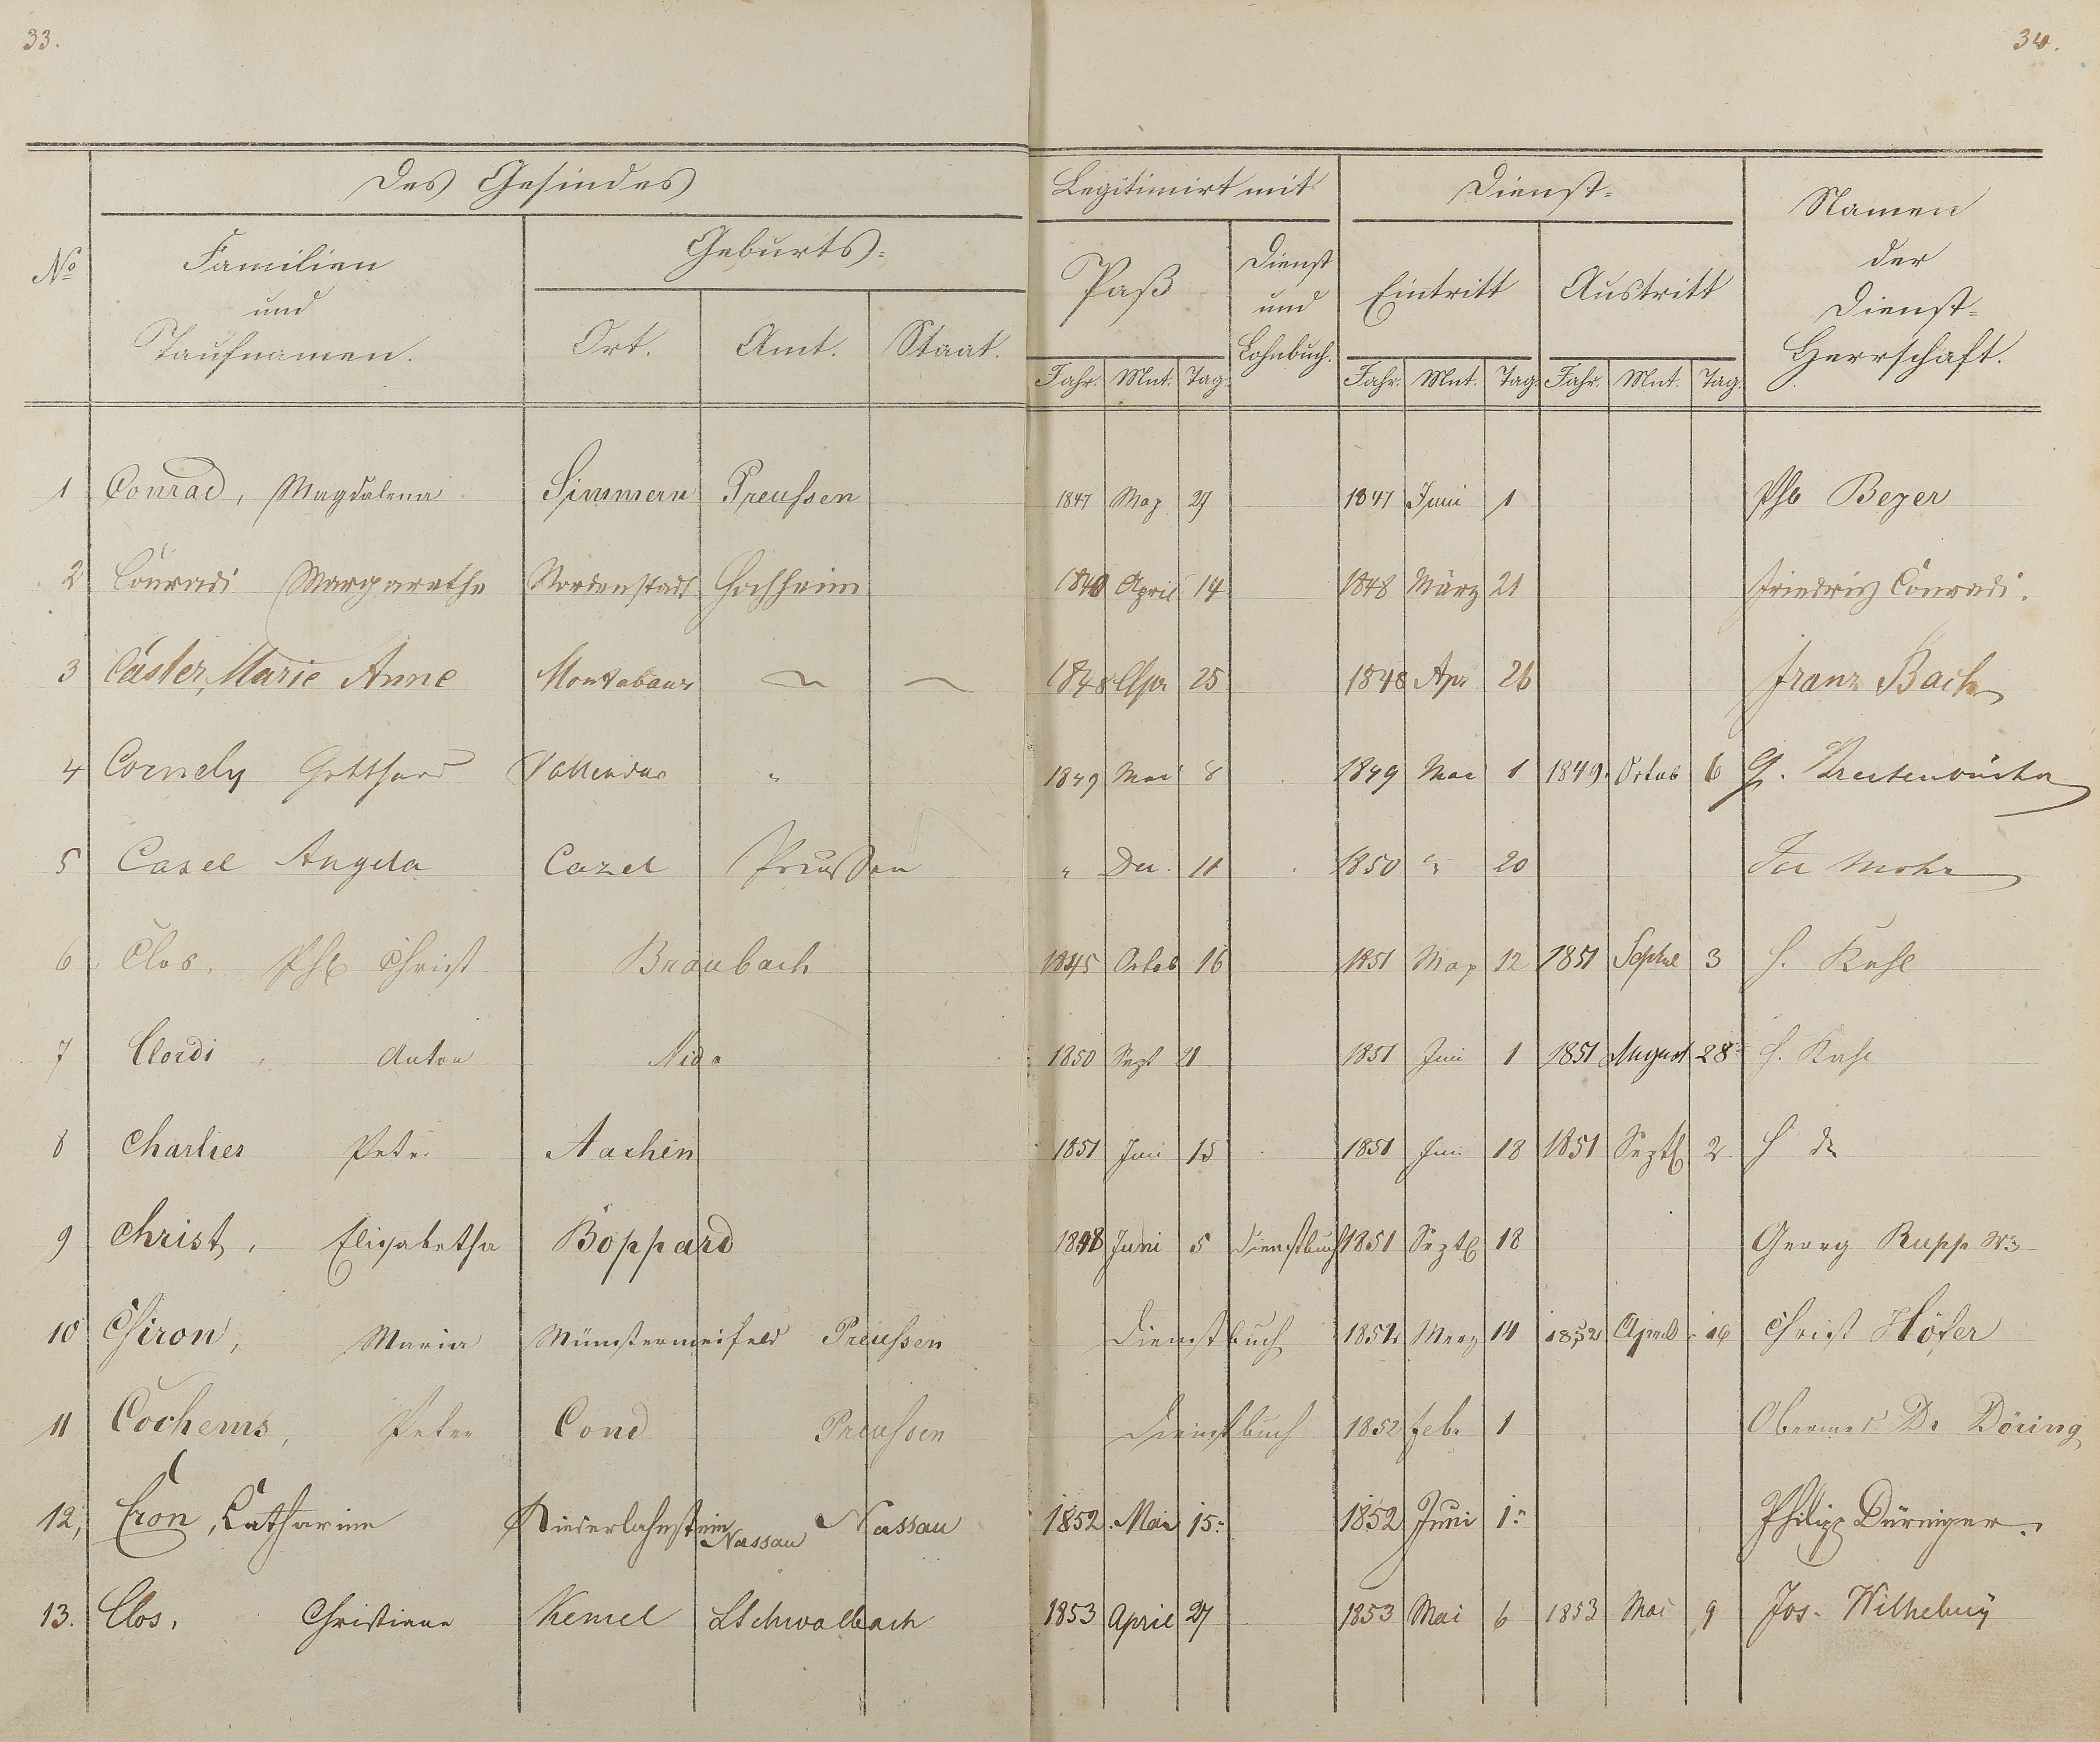 33.
34.
Des Gesindes
Legitimirt mit
Dienst=
Namen
der
Dienst=
Herrschaft.
No
Familien
und
Taufnamen.
Geburts=
Ort. Amt. Staat.
Paß
Dienst
und
Lohnbuch.
Eintritt
Austritt
Jahr. Mnt. Tag. Jahr. Mnt. Tag. Jahr. Mnt. Tag.
1 Conrad, Magdalena Simmern Preußen 1847 May 27 1847 Juni 1 Phl Beyer
2 Conradi Margarethe Nordenstadt Hochheim 1848 April 14 1848 März 21 Friedrich Conradi.
3 Caster, Marie Anne Montabaur 1848 Apr 25 1848 Apr 26 Franz Bach
4 Cornely Gotthard Vallendar " 1849 Mai 8 1849 Mai 1 1849. Octob 6 G.
5 Casel Angela Cazel Preussen " Dec. 11 1850 " 20 Mohr
6 Clos, Phl Christ Braubach 1845 Octob 16 1851 May 12 1851 Septbe 3 H. Kuhl
7 Clordi, Anton Nida 1850 Sept 21 1851 Juni 1 1851 August 28 H.
8 Charlier Peter Aachen 1851 Juni 15 1851 Juni 18 1851 Septb 2 H do
9 Christ, Elisabetha Boppard 1848 Juni 5 Dienstbuch 1851 Septb 18 Georg Rupp
10 Chiron, Maria Münstermeifeld Preußen Dienstbuch 1852 Merz 14 1852 April 16 Christ Höfer
11 Cochems, Peter Cond Preußen Dienstbuch 1852 Feb. 1 Dr Döring
12, Cron, Catharine Niederlahnstein Nassau Nassau 1852. Mai 15. 1852 Juni 1. Philipp Düringer.
13. Clos, Christiane Kemel LSchwalbach 1853 April 27 1853 Mai 6 1853 Mai 9 Jos. Wilhelmy